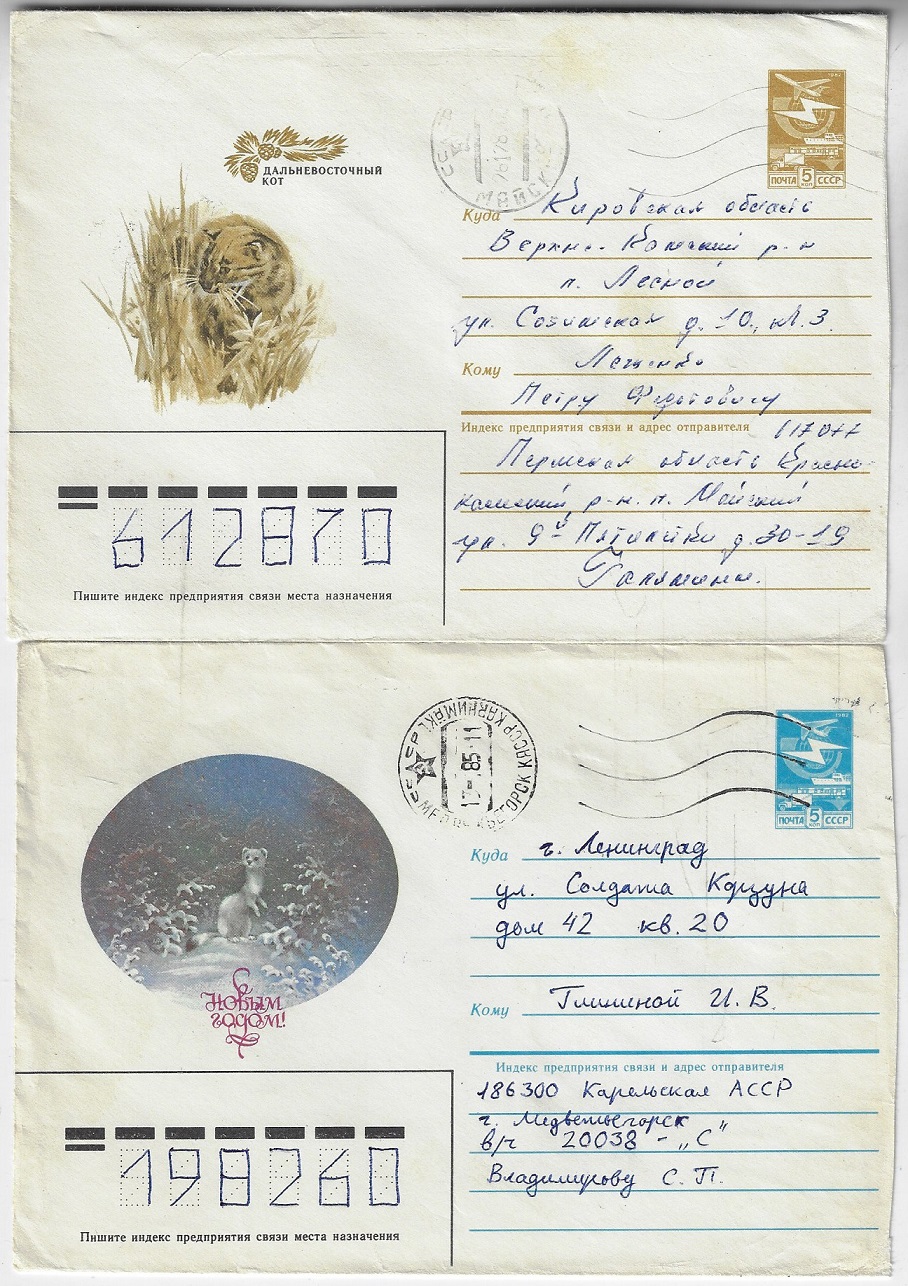 ДАЛЬНЕВОСТОЧНЫЙ
КОТ
МАЙСК
1982
ПОЧТА 5 КОП СССР
Куда Кировская область
Верхне-Камский р-н
п. Лесной
ул. Созимская д. 10, кв. 3.
Кому Лещенко
Петру Федотовичу
Индекс предприятия связи и адрес отправителя 617077
Пермская область Красно-
камский р-н. п. Майский
ул. 9й Пятилетки д. 30-19
612870
Пишите индекс предприятия связи места назначения
СССР МЕДВЕЖЬЕГОРСК КАССР
85 11
1982
ПОЧТА 5 КОП СССР
С НОВЫМ
ГОДОМ!
Куда г. Ленинград
ул. Солдата Корзуна
дом 42 кв. 20
Кому И. В.
Индекс предприятия связи и адрес отправителя
186300 Карельская АССР
г. Медвежьегорск
в/ч 20038 - „С"
Владимирову С. П.
198260
Пишите индекс предприятия связи места назначения